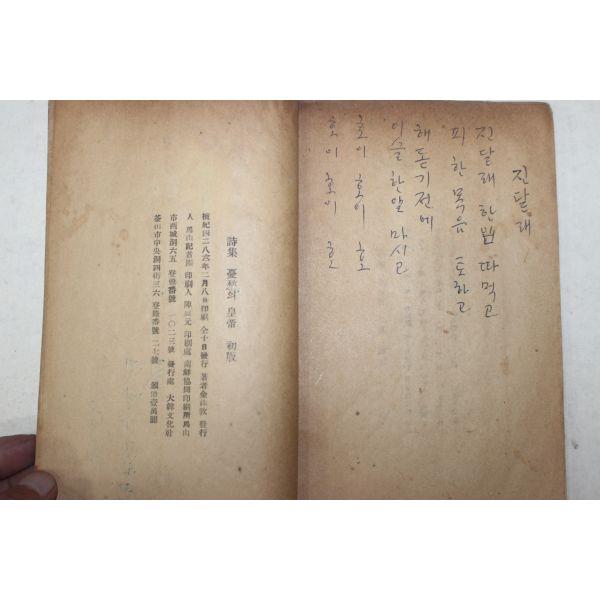 진달래
진달래 한닢 따먹고
피 한목음 토하고
해돋기전에
이슬 한알 마시고
호이 호이 호
호이 호이 호
詩集 憂愁의 皇帝 初版
檀紀四二八六年二月八日印刷 仝十日發行 著者 金
發行
人 馬山記者團 印刷人 陳 元 印刷處 南鮮協同印刷所 馬山
市西城洞六五 登錄番號 一〇二三號 發行處 大韓文化社
釜山市中央洞四街三六 登錄番號 二七號 頒價壹萬圜